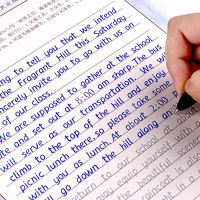 ng to tell you that we intend
the Fragrant Hill this Saturday
incerely invite you to go with us on
of our class.
We are supposed to gather at the school
te and set out at 8:00 am sharp. The bus
will serve as our transportation. We
climb to the top of the hill and enjoy
picnic lunch there, so please take some
with you as lunch. At about
ll go down the hill along an
return to school
may equip yourself with
the beautiful scene
raincoat is